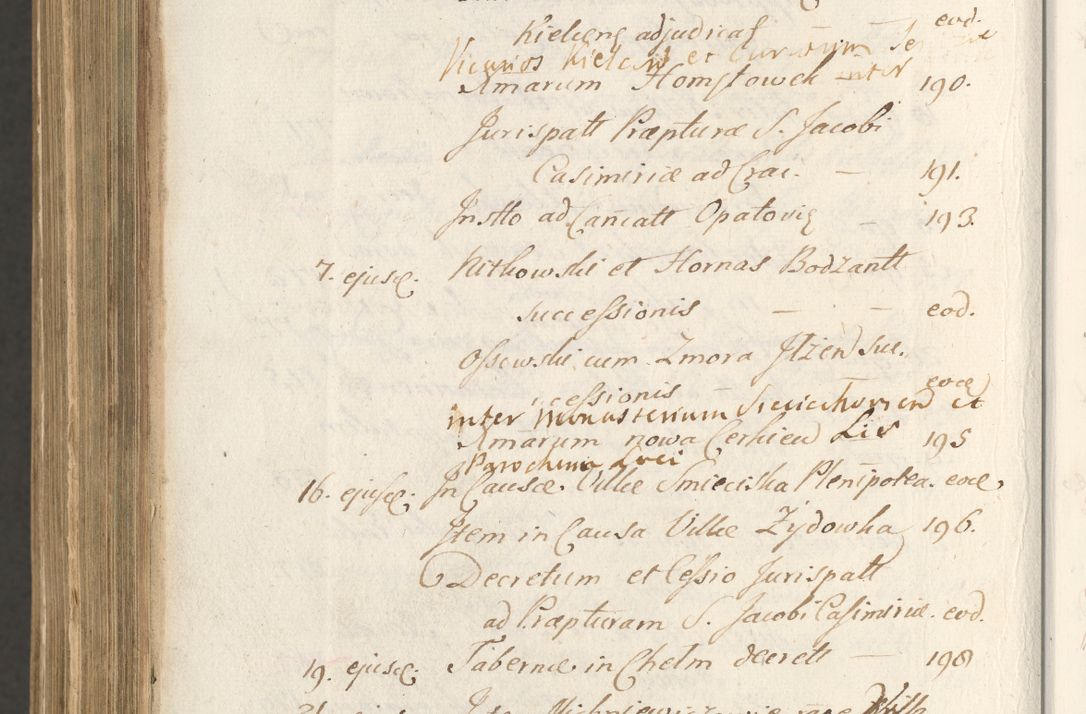 Kielcens adjudicat eod.
Vicarios Kielcen et Curatum
Amarum Homstowek inter 190.
Jurispatt Præpturæ S. Jacobi
Casimiriæ ad Crac. — 191.
Instto ad Cancatt Opatovię — 193.
7. ejusd. Kitkowski et Hornas Bodzantt
successionis — — eod.
Ossowski cum Zmora Jlżen suc.
cessionis eod.
inter Monasterium Sieciechovien et
Amarum nowa Cerkiew Lis 195
Parochum Loci
16. ejusd. In Causa Villæ Smieciska Plenipotea. eod.
Item in Causa Villæ Zydowka 196.
Decretum et Cessio Jurispatt
ad Præpturam S. Jacobi Casimiriæ. eod.
19. ejusd. Tabernæ in Chelm decrett — 198